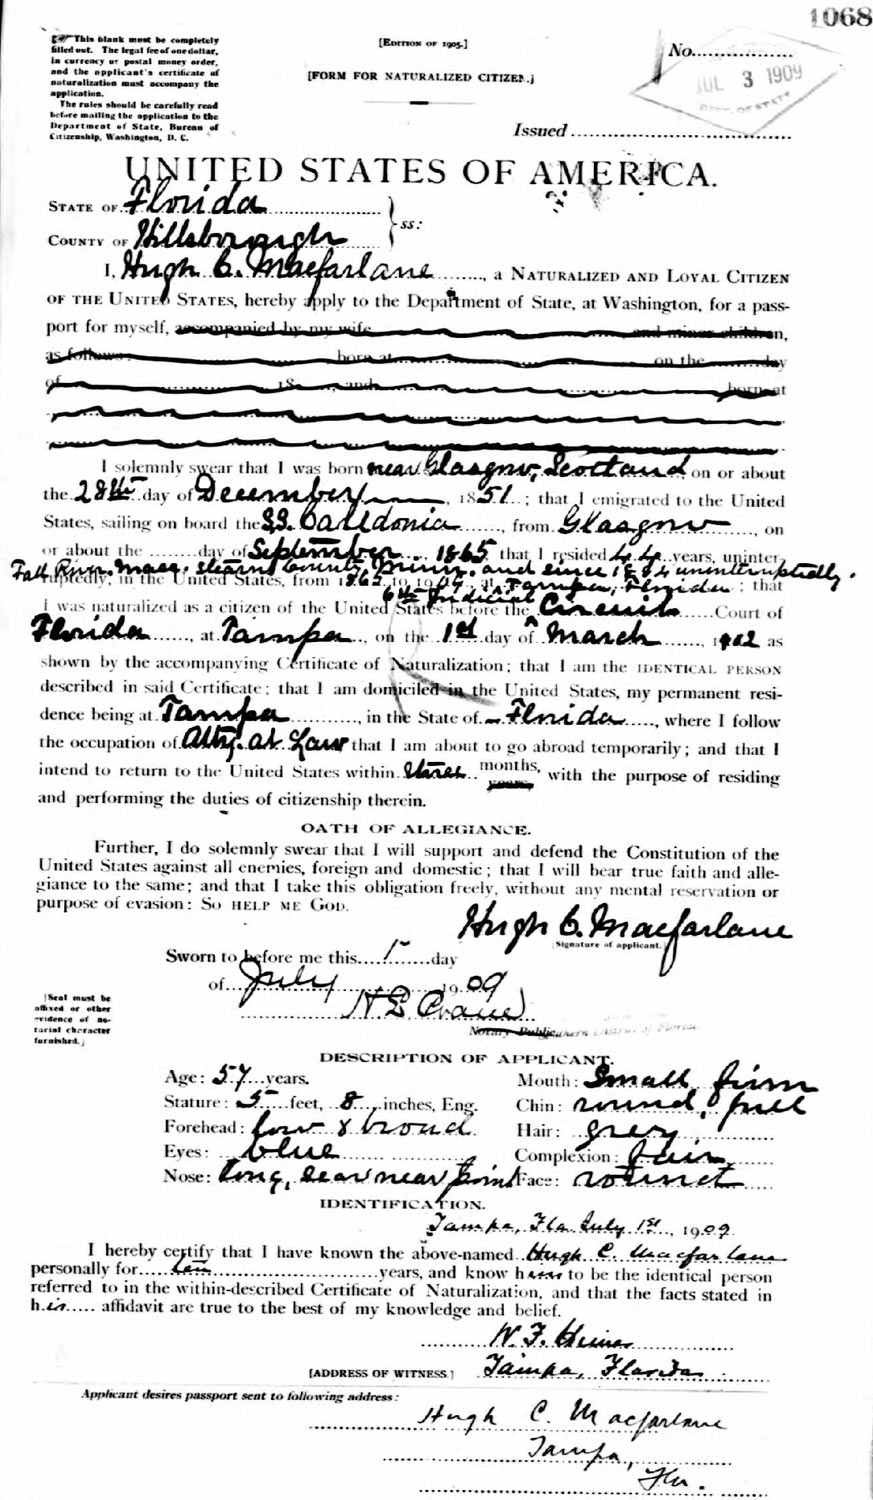 1068
This blank must be completely
filled out. The legal fee of one dollar,
in currency or postal money order,
and the applicant's certificate of
naturalization must accompany the
application.
The rules should be carefully read
before mailing the application to the
Department of State, Bureau of
Citizenship, Washington, D. C.
[EDITION OF 1905.]
[FORM FOR NATURALIZED CITIZEN.]
No.
JUL 3 1909
DEPT. OF STATE
Issued
UNITED STATES OF AMERICA.
STATE OF Florida
ss:
COUNTY OF Hillsborough
I, Hugh C. Macfarlane, a NATURALIZED AND LOYAL CITIZEN
OF THE UNITED STATES, hereby apply to the Department of State, at Washington, for a pass-
port for myself, accompanied by my wife and minor children,
as follows: born at on the day
of 18 , and born at
I solemnly swear that I was born near Glasgow, Scotland on or about
the 28th day of December, 1851; that I emigrated to the United
States, sailing on board the SS. Caledonia, from Glasgow, on
or about the day of September, 1865 that I resided 44 years, uninter-
Fall River, Mass. Stearns County, Minn. and since 1884 uninterruptedly.
ruptedly, in the United States, from 1865 to 1909, at Tampa, Florida; that
6th Judicial
I was naturalized as a citizen of the United States before the Circuit Court of
Florida, at Tampa, on the 1st day of March, 1902 as
shown by the accompanying Certificate of Naturalization; that I am the IDENTICAL PERSON
described in said Certificate; that I am domiciled in the United States, my permanent resi-
dence being at Tampa, in the State of Florida, where I follow
the occupation of Atty. at Law that I am about to go abroad temporarily; and that I
intend to return to the United States within three months, years with the purpose of residing
and performing the duties of citizenship therein.
OATH OF ALLEGIANCE.
Further, I do solemnly swear that I will support and defend the Constitution of the
United States against all enemies, foreign and domestic; that I will bear true faith and alle-
giance to the same; and that I take this obligation freely, without any mental reservation or
purpose of evasion: SO HELP ME GOD.
Hugh C. Macfarlane
[Signature of applicant.]
Sworn to before me this 1st day
of July 1909
[Seal must be
affixed or other
evidence of no-
tarial character
furnished.]
H L Crane
Notary Public of Florida
DESCRIPTION OF APPLICANT.
Age: 57 years. Mouth: Small, firm
Stature: 5 feet, 8 inches, Eng. Chin: round, full
Forehead: low & broad Hair: grey
Eyes: blue Complexion: fair
Nose: long, scar near point Face: rotund
IDENTIFICATION.
Tampa, Fla. July 1st, 1909
I hereby certify that I have known the above-named Hugh C. Macfarlane
personally for ten years, and know him to be the identical person
referred to in the within-described Certificate of Naturalization, and that the facts stated in
his affidavit are true to the best of my knowledge and belief.
W. F. Himes
[ADDRESS OF WITNESS.] Tampa, Florida
Applicant desires passport sent to following address:
Hugh C. Macfarlane
Tampa,
Fla.